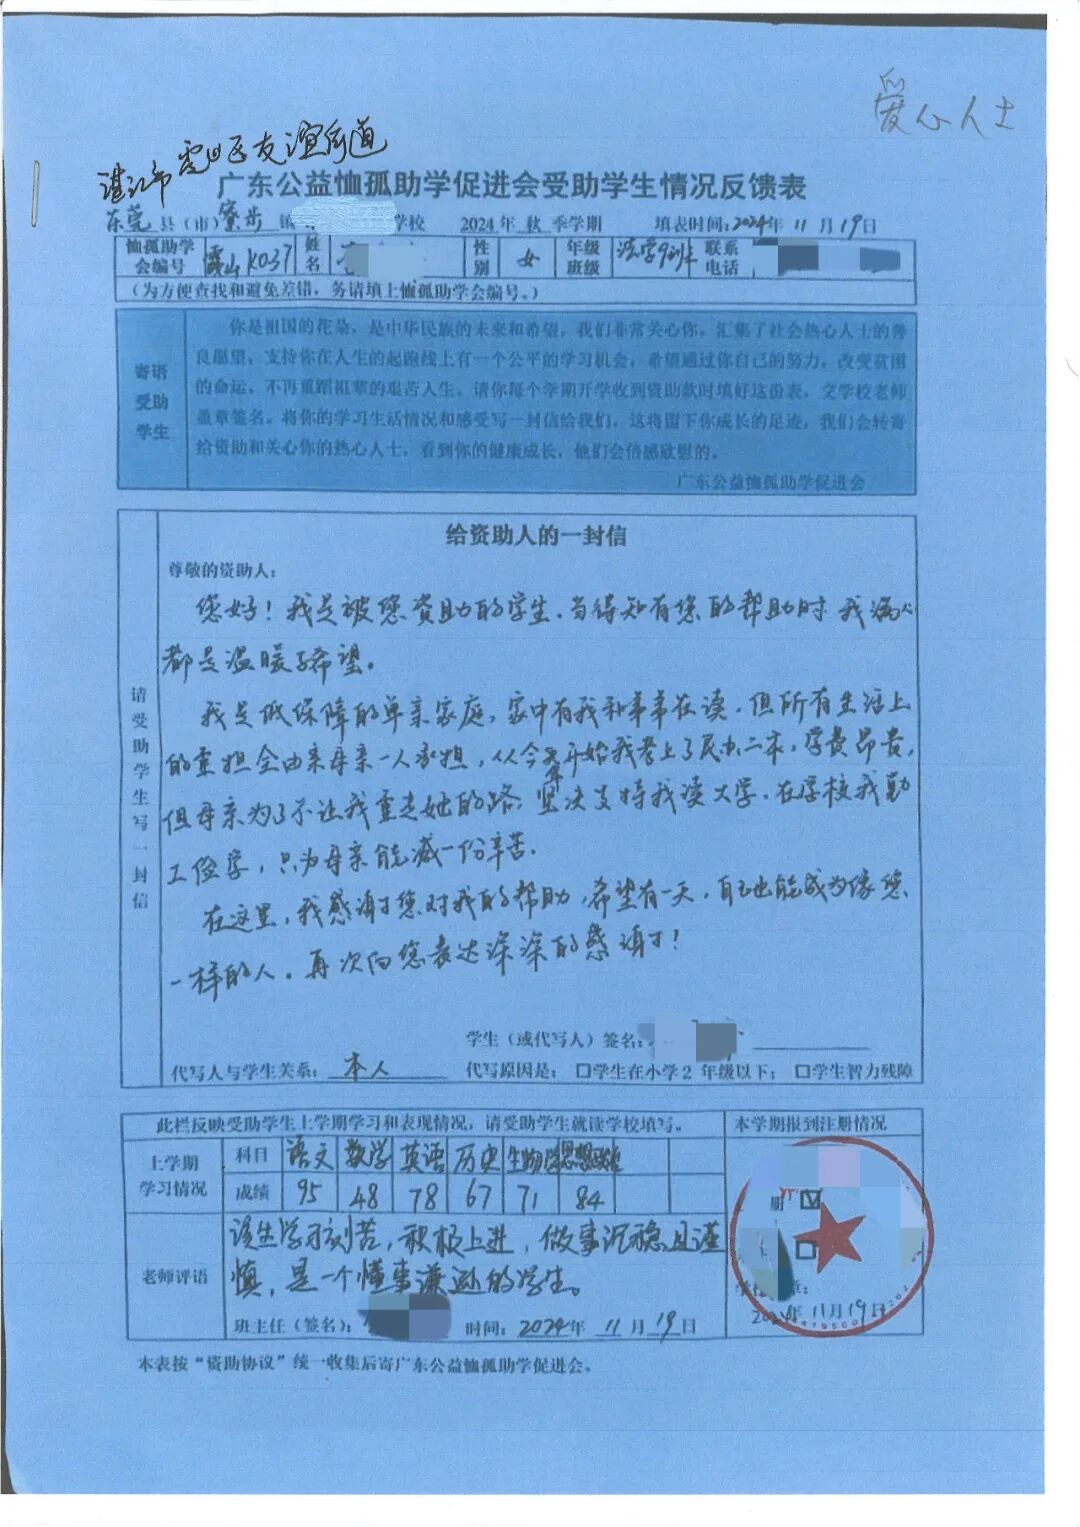 爱心人士
湛江市 霞山区友谊街道
广东公益恤孤助学促进会受助学生情况反馈表
东莞 县(市) 寮步 镇 学校 2024年 秋 季学期 填表时间:2024年11月19日
恤孤助学会编号 霞山K037 姓名 性别 女 年级班级 法学9班 联系电话
(为方便查找和避免差错,务请填上恤孤助学会编号。)
寄语受助学生
你是祖国的花朵,是中华民族的未来和希望,我们非常关心你,汇集了社会热心人士的善
良愿望,支持你在人生的起跑线上有一个公平的学习机会,希望通过你自己的努力,改变贫困
的命运,不再重蹈祖辈的艰苦人生。请你每个学期开学收到资助款时填好这份表,交学校老师
盖章签名,将你的学习生活情况和感受写一封信给我们,这将留下你成长的足迹,我们会转寄
给资助和关心你的热心人士,看到你的健康成长,他们会倍感欣慰的。
广东公益恤孤助学促进会
请受助学生写一封信
给资助人的一封信
尊敬的资助人:
您好!我是被您资助的学生.当得知有您的帮助时 我满心
都是温暖与希望。
我是低保障的单亲家庭,家中有我和弟弟在读.但所有生活上
的重担全由亲母亲一人承担,从今年开始我考上了民办二本,学费昂贵,
但母亲为了不让我重走她的路,坚决支持我读大学.在学校我勤
工俭学,只为母亲能减一份辛苦.
在这里,我感谢您对我的帮助,希望有一天,自己也能成为像您
一样的人.再次向您表达深深的感谢!
学生(或代写人)签名:
代写人与学生关系: 本人 代写原因是: □学生在小学2年级以下; □学生智力残障
此栏反映受助学生上学期学习和表现情况,请受助学生就读学校填写。 本学期报到注册情况
上学期学习情况
科目 语文 数学 英语 历史 生物学 思想政治
成绩 95 48 78 67 71 84
册 ☑
□
老师评语
该生学习刻苦,积极上进,做事沉稳且谨
慎,是一个懂事谦逊的学生。
章:
2024年11月19日
班主任(签名): 时间:2024年11月19日
本表按“资助协议”统一收集后寄广东公益恤孤助学促进会。